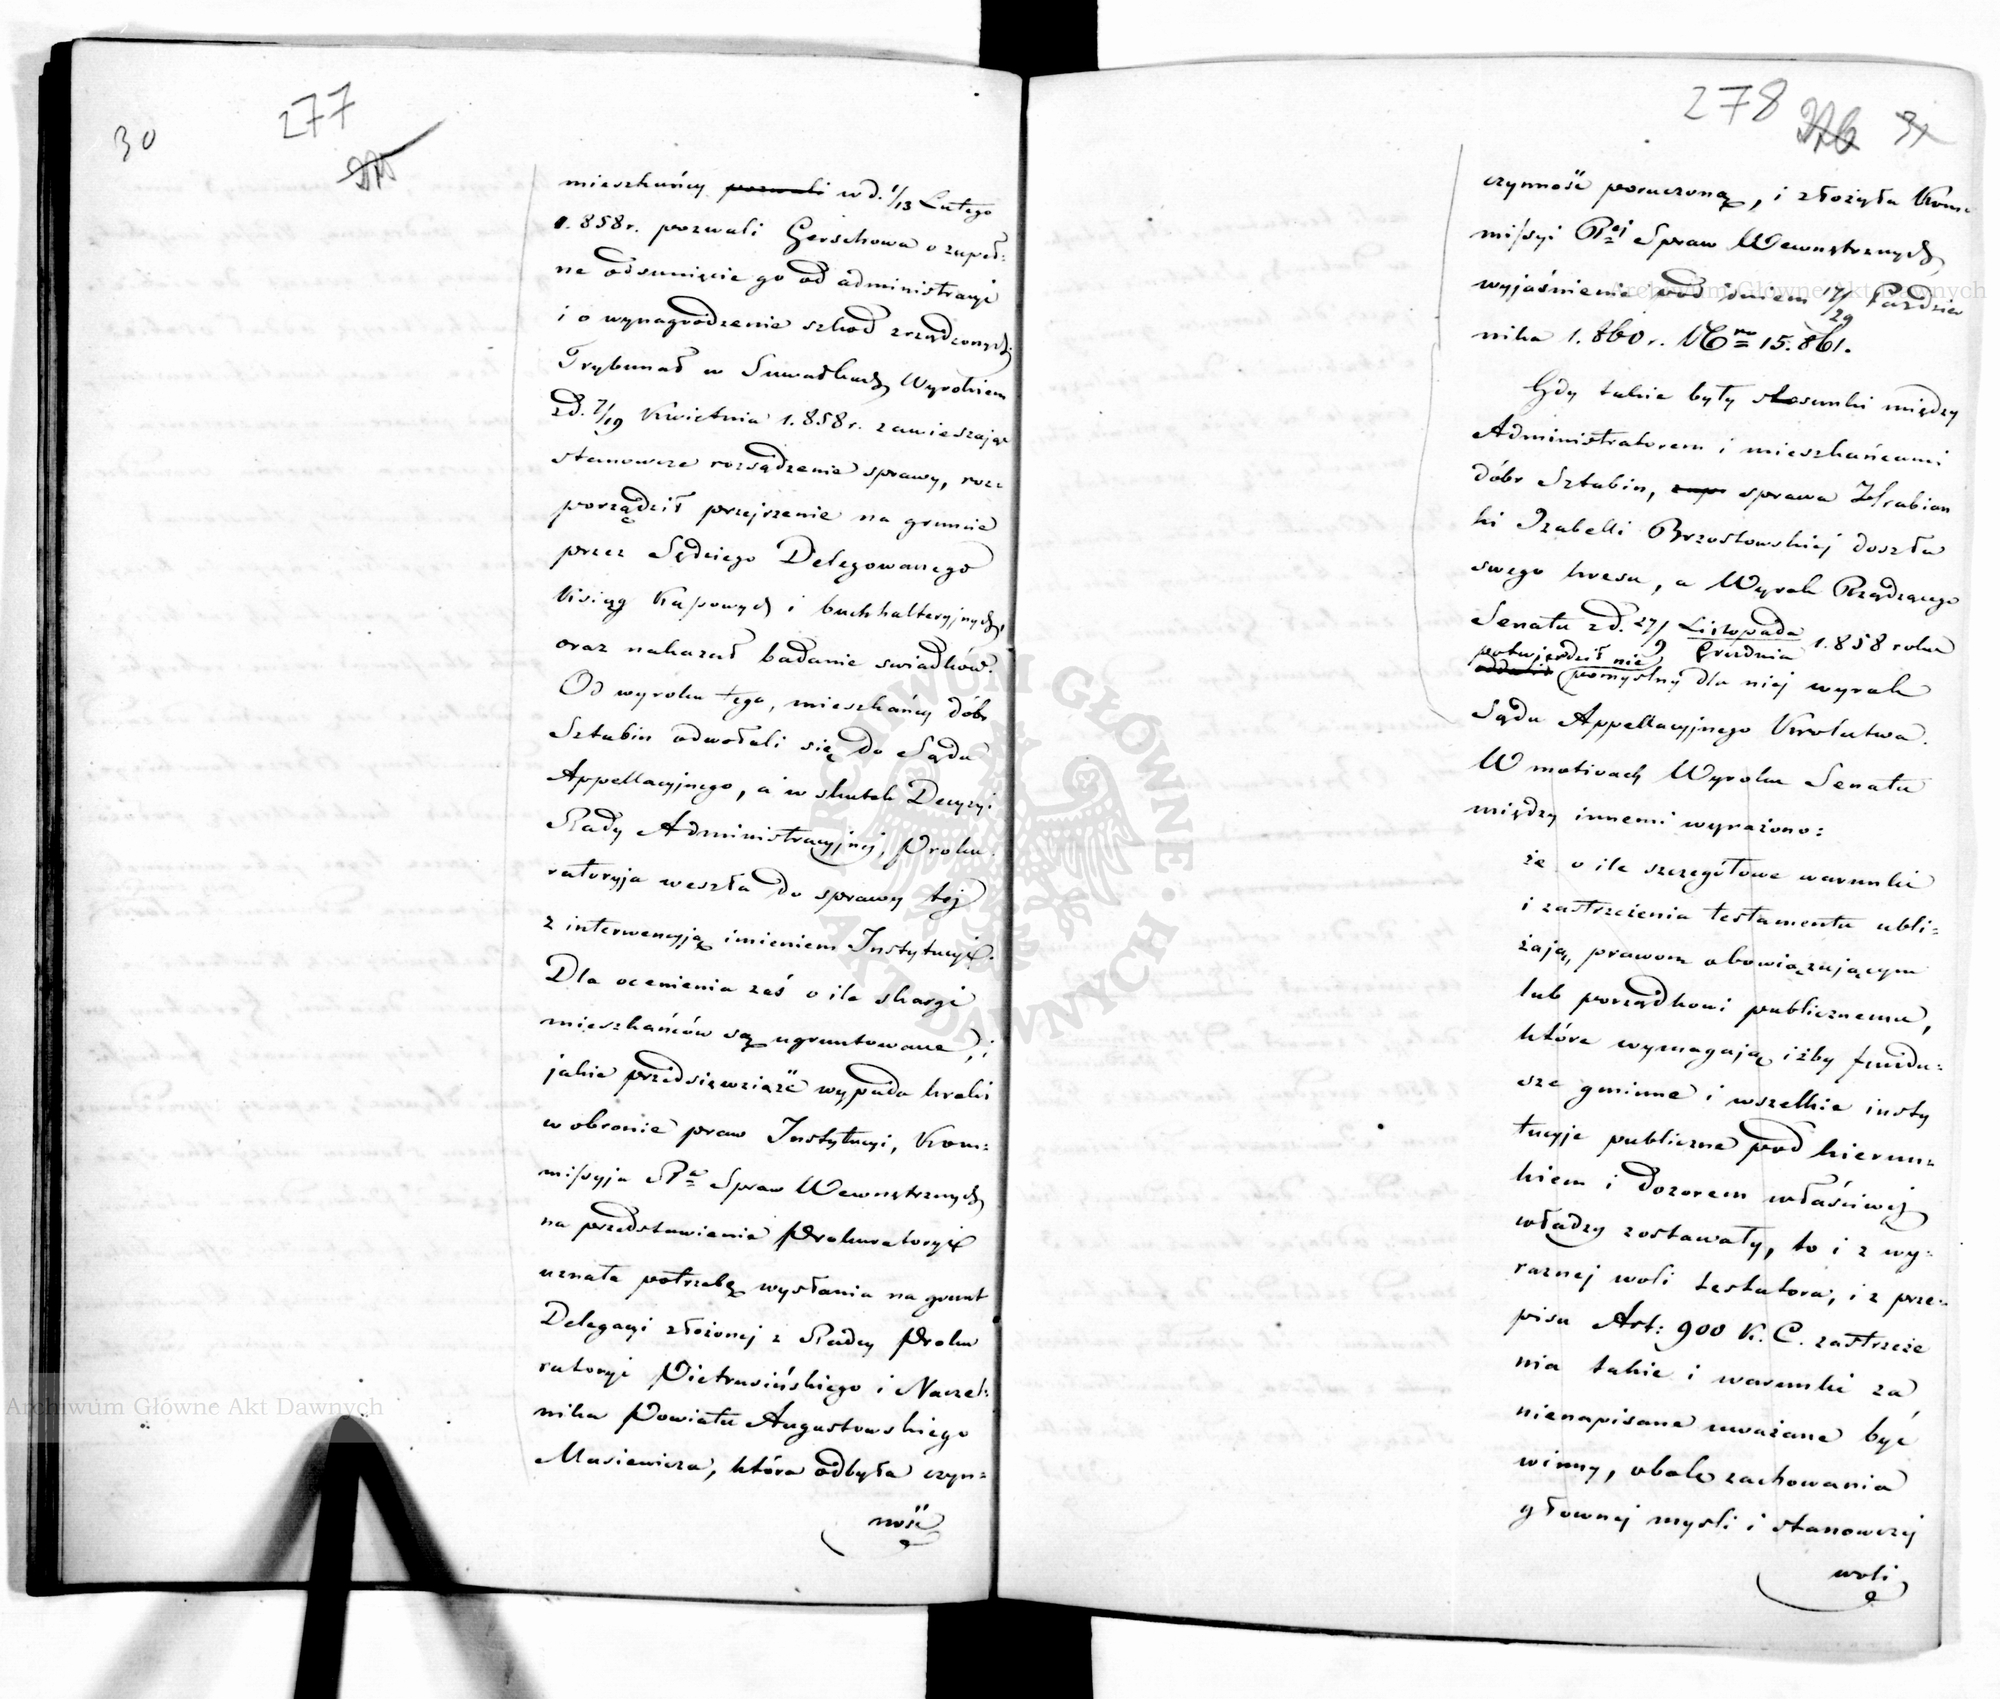 30
277
mieszkańcy pozwali w d. 1/13 Lutego
1.858 r. pozwali Gerschowa o zupeł=
ne odsunięcie go od administracyi
i o wynagrodzenie szkod zrządzonych
Trybunał w Suwałkach Wyrokiem
z d. 7/19 Kwietnia 1.858 r. zawieszając
stanowcze rozsądzenie sprawy, roz=
porządził przejrzenie na gruncie
przez Sędziego Delegowanego
Xsiąg Kassowych i buchhalteryjnych,
oraz nakazał badanie swiadków.
Od wyroku tego, mieszkańcy dóbr
Sztabin odwołali się do Sądu
Appellacyjnego, a w skutek Decyzyi
Rady Administracyjnej, Proku=
ratoryja weszła do sprawy tej
z interwencyją imieniem Instytucyi.
Dla ocenienia zaś o ile skargi
mieszkańców są ugruntowane, i
jakie przedsięwziąść wypada kroki
w obronie praw Instytucyi, Kom=
missyja Rª Spraw Wewnętrznych
na przedstawienie Prokuratoryi
uznała potrzebę wysłania na grunt
Delegacyi złożonej z Radcy Proku
ratoryi Pietrusińskiego i Naczel=
nika Powiatu Augustowskiego
Musiewicza, która odbyła czyn=
ność
278
31
czynność poruczoną, i złożyła Kom=
missyi Rej Spraw Wewnętrznych
wyjaśnienie pod dniem 17/29 Paździer
nika 1.860 r. Nro 15.861.
Gdy takie były stosunki między
Administratorem i mieszkańcami
dóbr Sztabin, sprawa Hrabian
ki Izabelli Brzostowskiej doszła
swego kresu, a Wyrok Rządzącego
Senatu z d. 27/9 Listopada/Grudnia 1.858 roku
potwierdził nie
pomyslny dla niej wyrok
Sądu Appellacyjnego Krolestwa.
W motivach Wyroku Senatu
między innemi wyrażono:
że o ile szczegółowe warunki
i zastrzeżenia testamentu ubli=
żają, prawom obowiązującym
lub porządkowi publicznemu,
które wymagają iżby fundu=
sze gminne i wszelkie insty
tucyje publiczne pod kierun=
kiem i dozorem właściwej
władzy zostawały, to i z wy=
raznej woli testatora, i z prze=
pisu Art: 900 K. C. zastrzeże
nia takie i warunki za
nienapisane uważane być
winny, obok zachowania
głownej mysli i stanowczej
woli
Archiwum Główne Akt Dawnych
Archiwum Główne Akt Dawnych
ARCHIWUM GŁÓWNE · AKT DAWNYCH ·